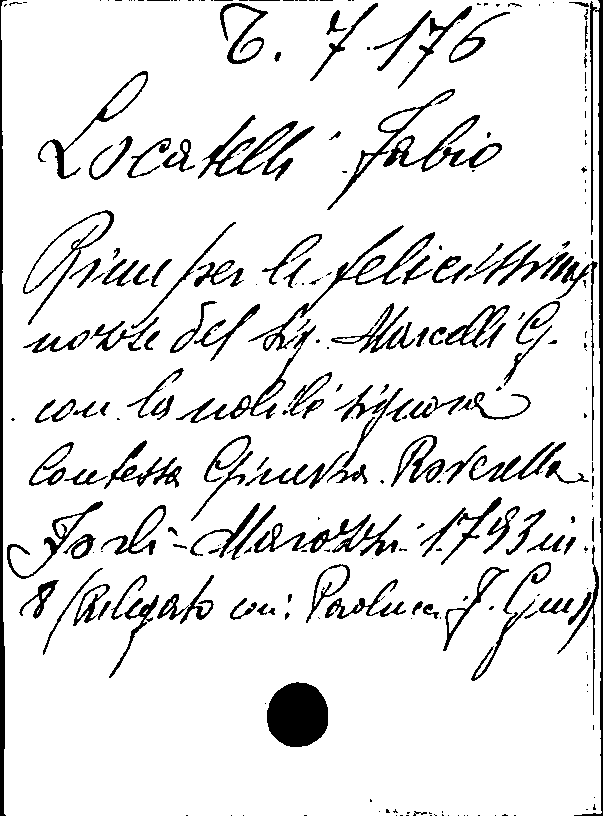 T. 7 176
Locatelli Fabio
Rime per le felicissime
nozze del Sig. Marcelli G.
con la nobile signora
Contessa Ginevra Roverella
Forlì - Marozzi 1793 in
8 (Rilegato con: Paolucci F. Gius)